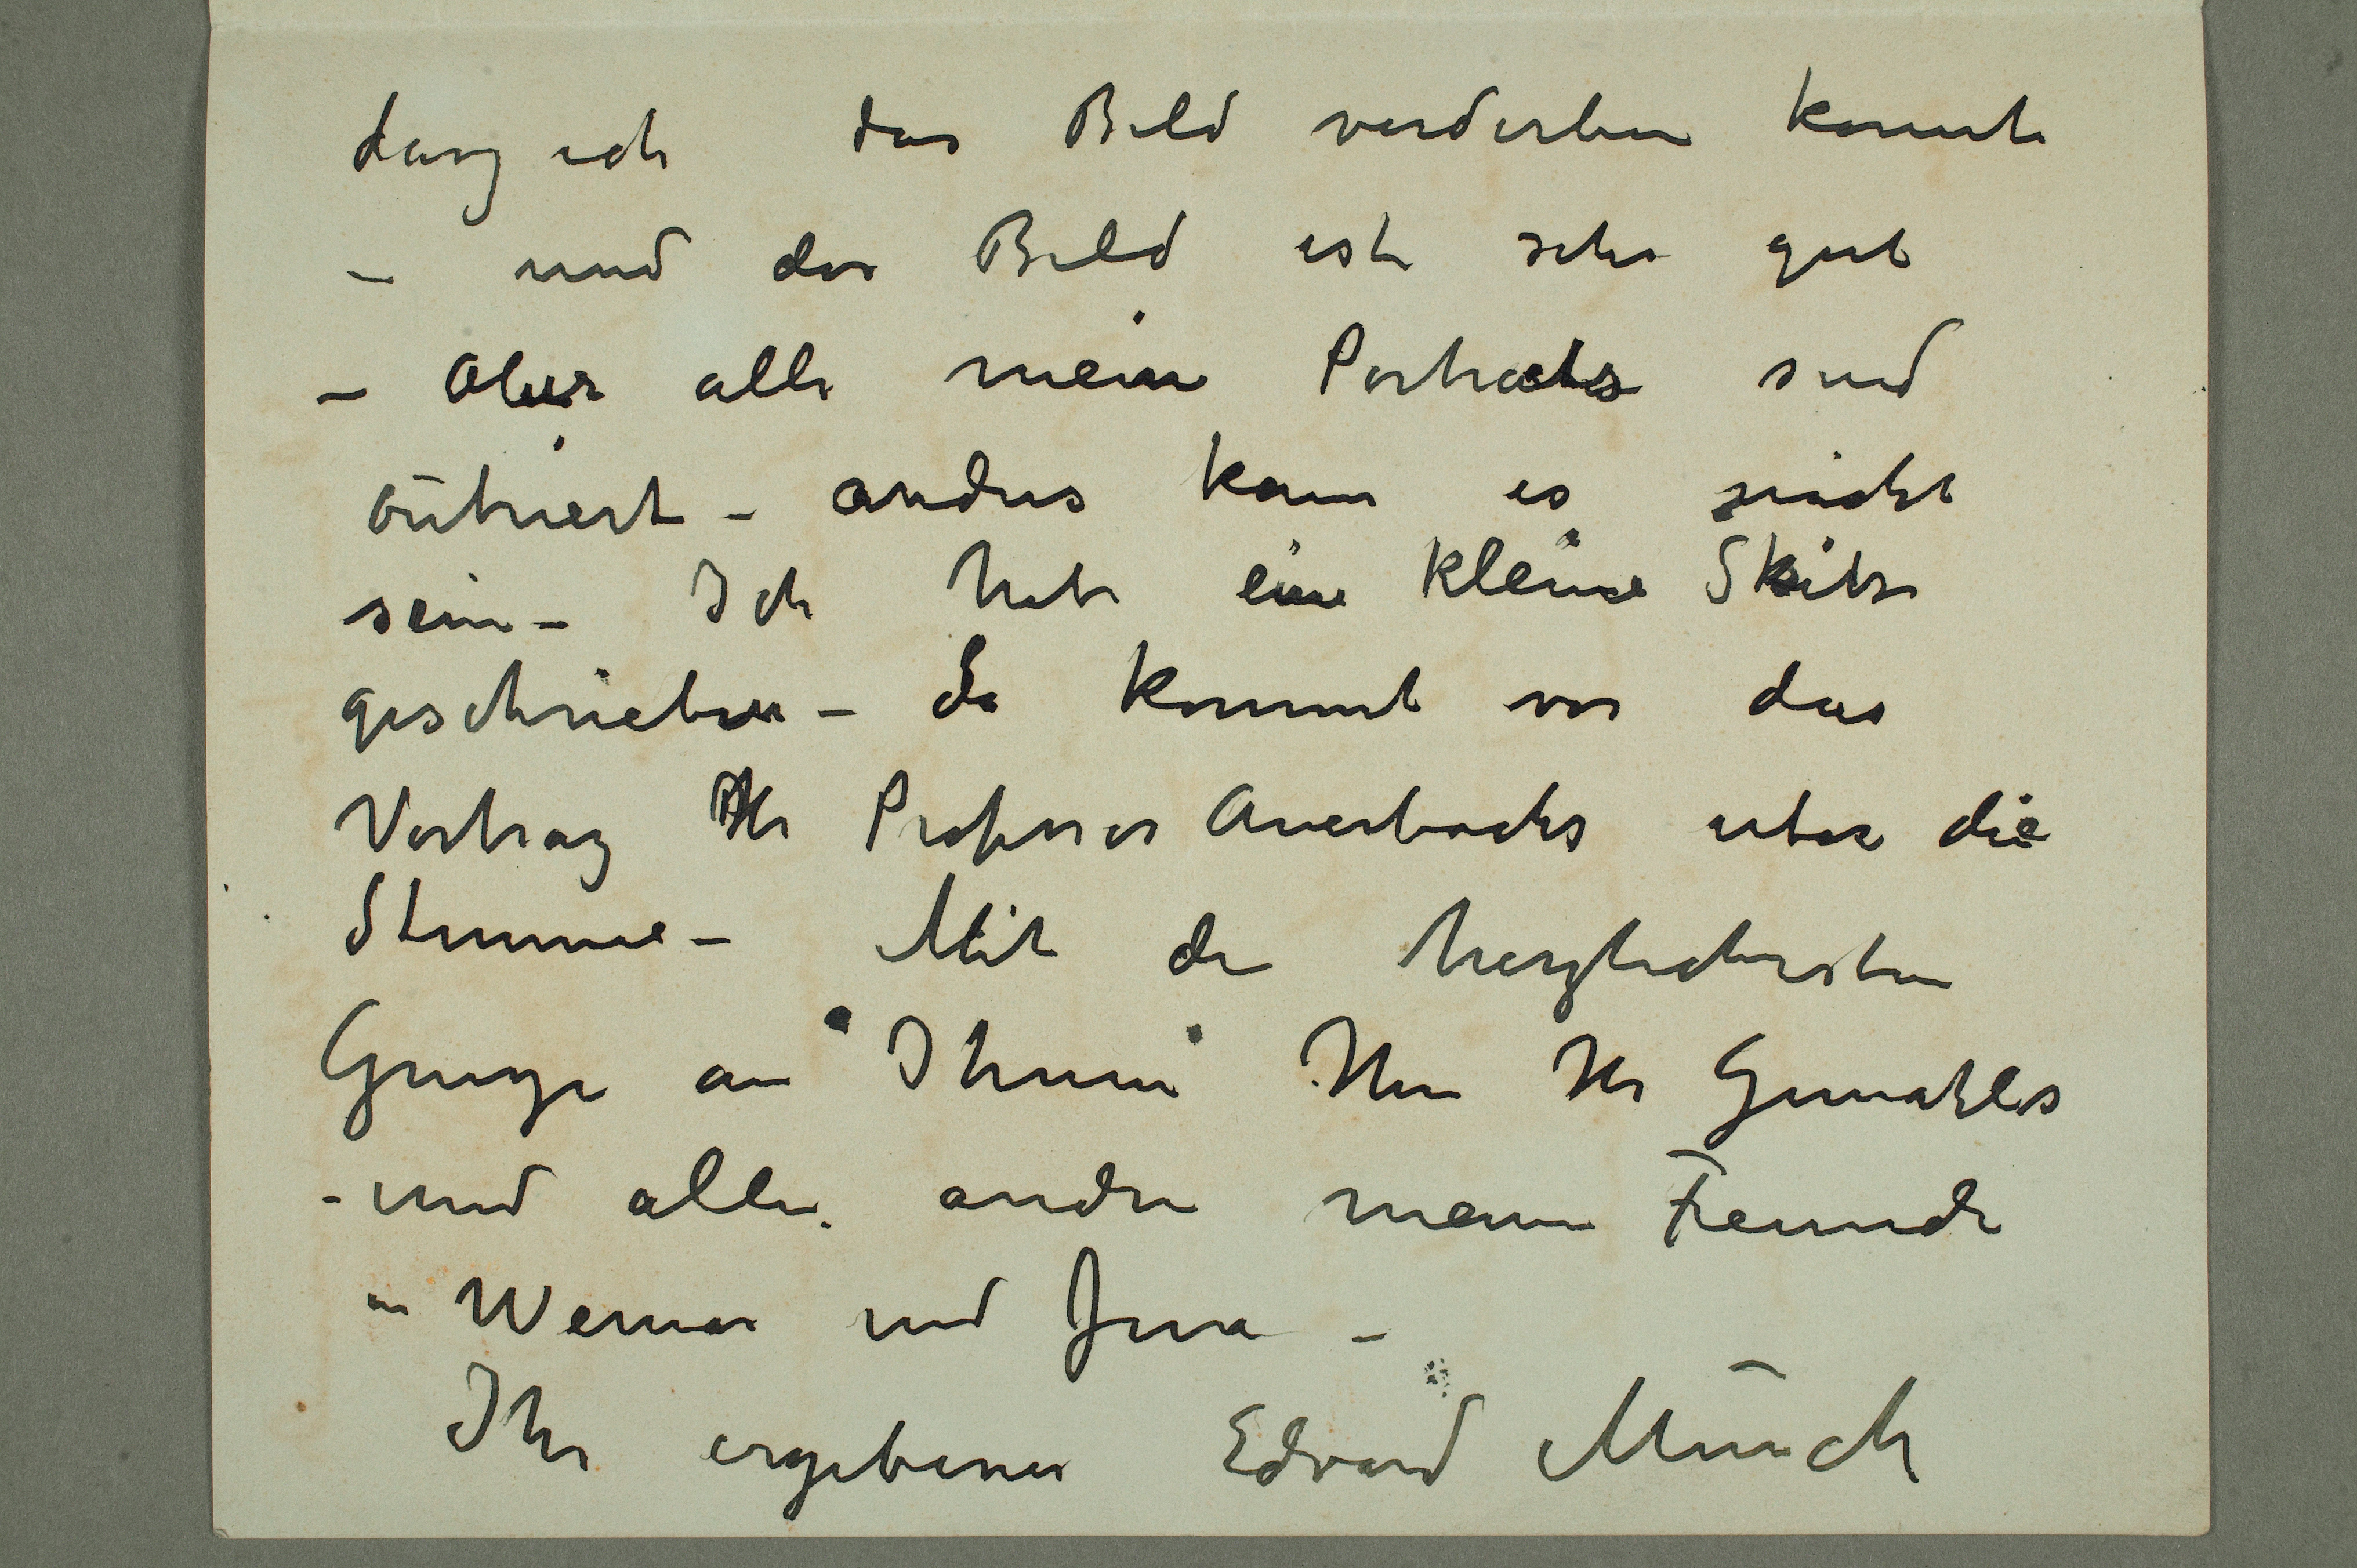 dasz ich das Bild verderben konnte
– und das Bild ist sehr gut
– Aber alle meine Portraets sind
outriert – anders kann es nicht
sein – Ich habe eine kleine Skitse
geschrieben – da kommt vor das
Vortrag Hr Professor Auerbachs uber die
Stimme – Mit den herzlichersten
Grusze an Ihnen Hr Gemahles
– und allen andren meinen Freunde
in Weimar und Jena –
Ihr ergebener Edvard Munch